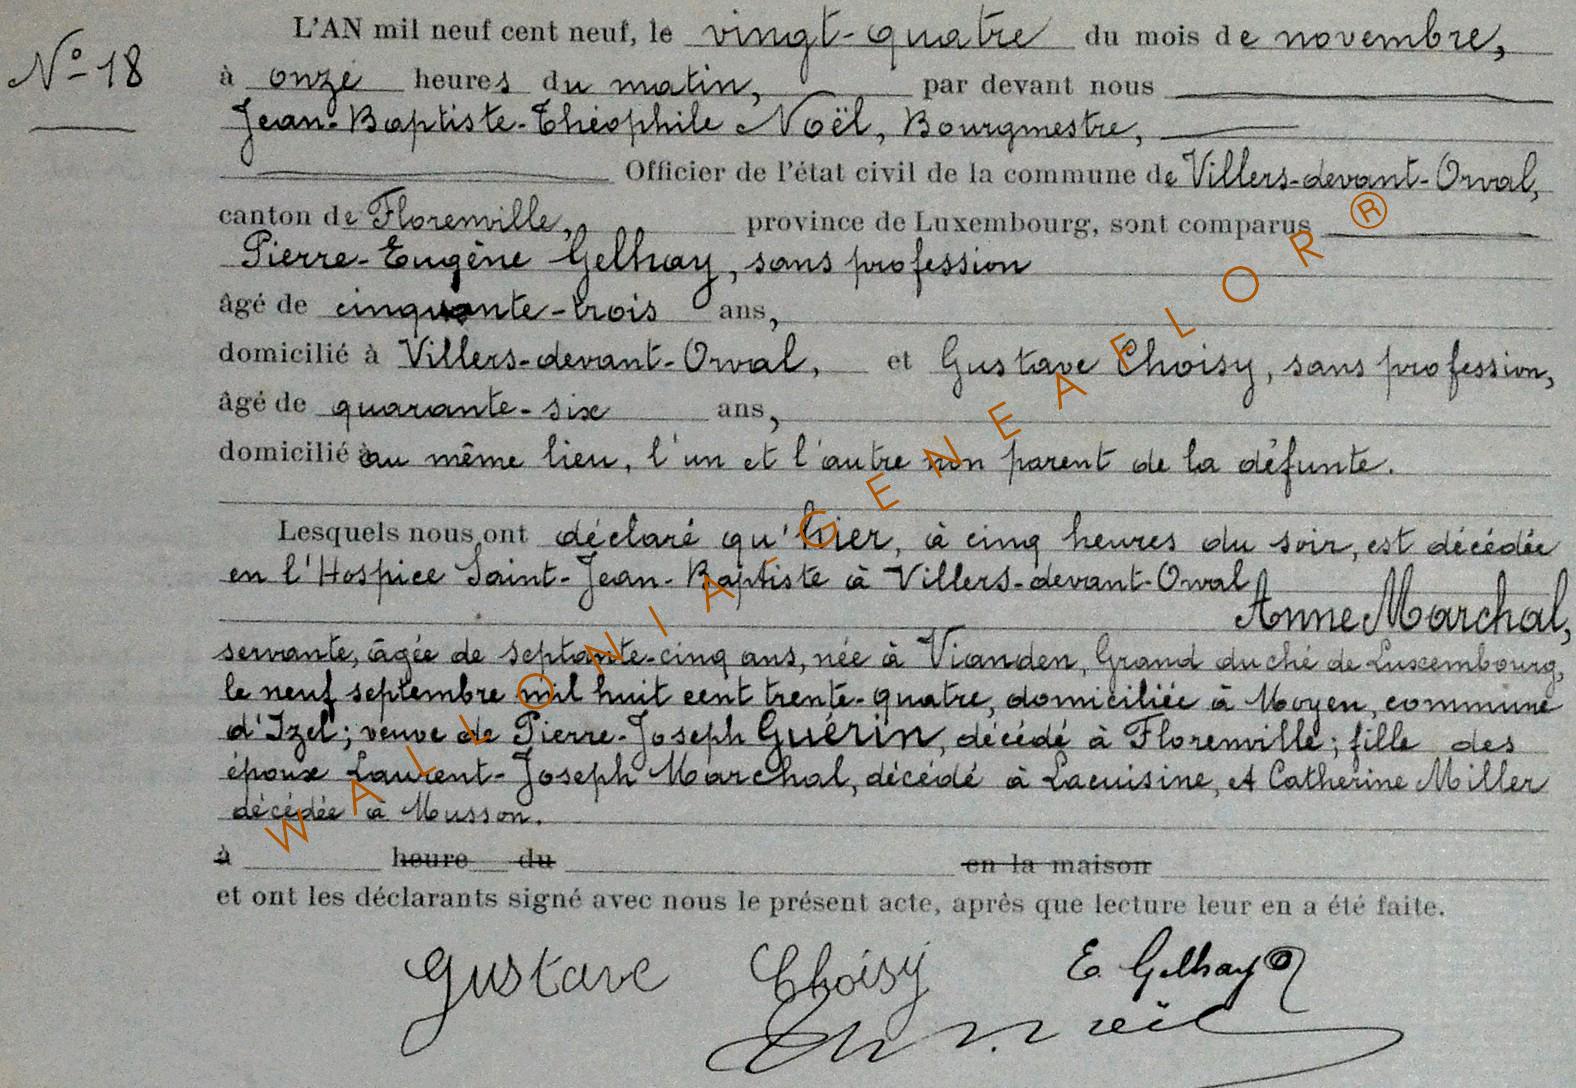 L'AN mil neuf cent neuf, le vingt-quatre du mois de novembre,
N° 18
à onze heures du matin, par devant nous
Jean-Baptiste-Théophile Noël, Bourgmestre,
Officier de l'état civil de la commune de Villers-devant-Orval,
canton de Florenville, province de Luxembourg, sont comparus
Pierre-Eugène Gelhay, sans profession
âgé de cinquante-trois ans,
domicilié à Villers-devant-Orval, et Gustave Choisy, sans profession,
âgé de quarante-six ans,
domicilié à au même lieu, l'un et l'autre non parent de la défunte.
Lesquels nous ont déclaré qu'hier, à cinq heures du soir, est décédée
en l'Hospice Saint-Jean-Baptiste à Villers-devant-Orval
Anne Marchal,
servante, âgée de septante-cinq ans, née à Vianden, Grand duché de Luxembourg,
le neuf septembre mil huit cent trente-quatre, domiciliée à Moyen, commune
d'Izel; veuve de Pierre-Joseph Guérin, décédé à Florenville; fille des
époux Laurent-Joseph Marchal, décédé à Lacuisine, et Catherine Miller
décédée à Musson.
à heure du en la maison
et ont les déclarants signé avec nous le présent acte, après que lecture leur en a été faite.
Gustave Choisy E. Gelhay
Th. Noël
WALLONIA-GENEAFLOR ®